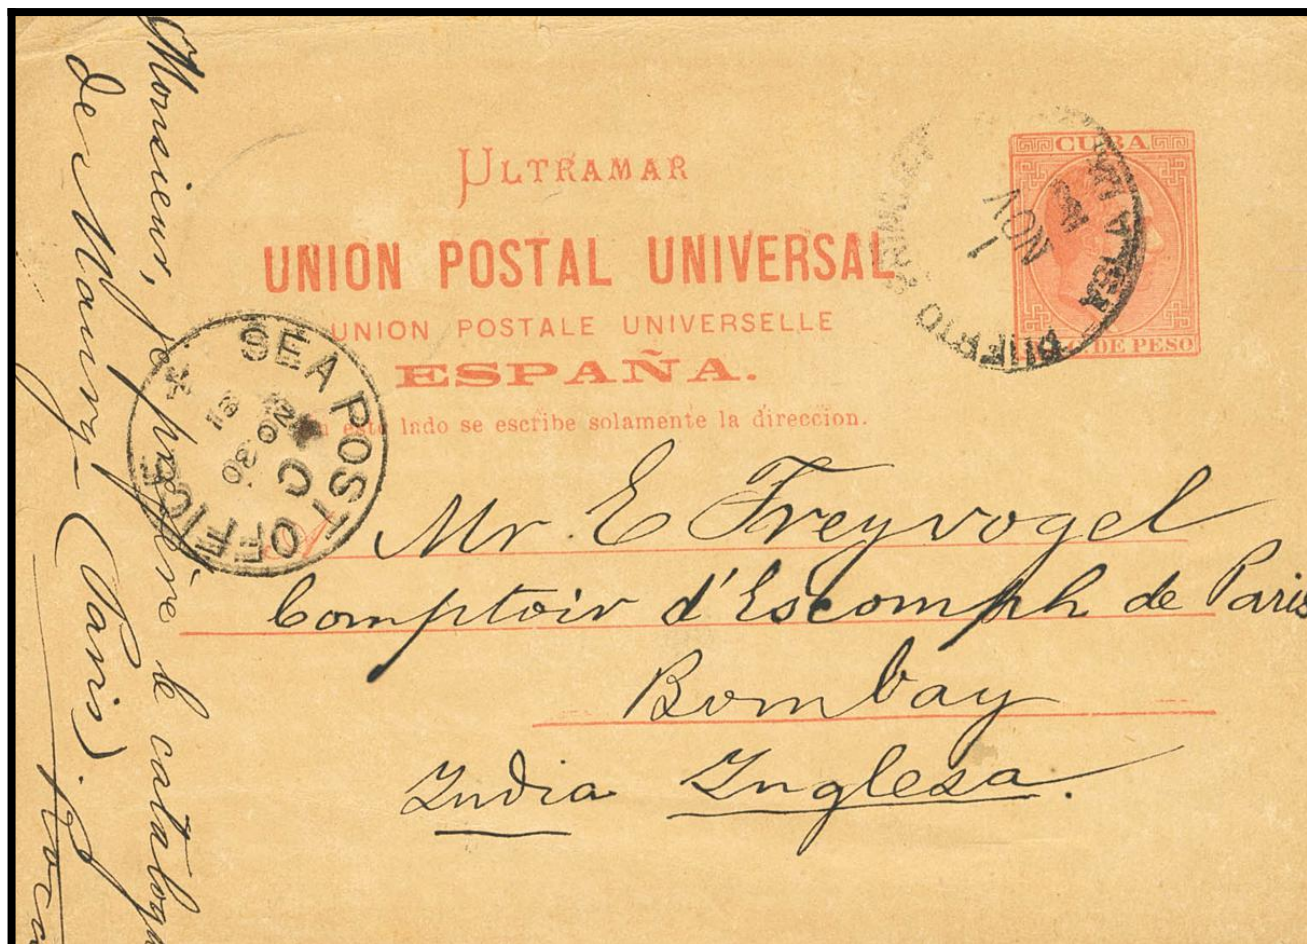 ULTRAMAR
UNION POSTAL UNIVERSAL
UNION POSTALE UNIVERSELLE
ESPAÑA.
este lado se escribe solamente la direccion.
CUBA
C. DE PESO
NOV
1
SEA POST OFFICE
C
NO 30
Mr E Freyvogel
Comptoir d'Escompt de Paris
Bombay
India Inglesa.
Monsieur, je préfère le catalogu
de Maury (Paris).